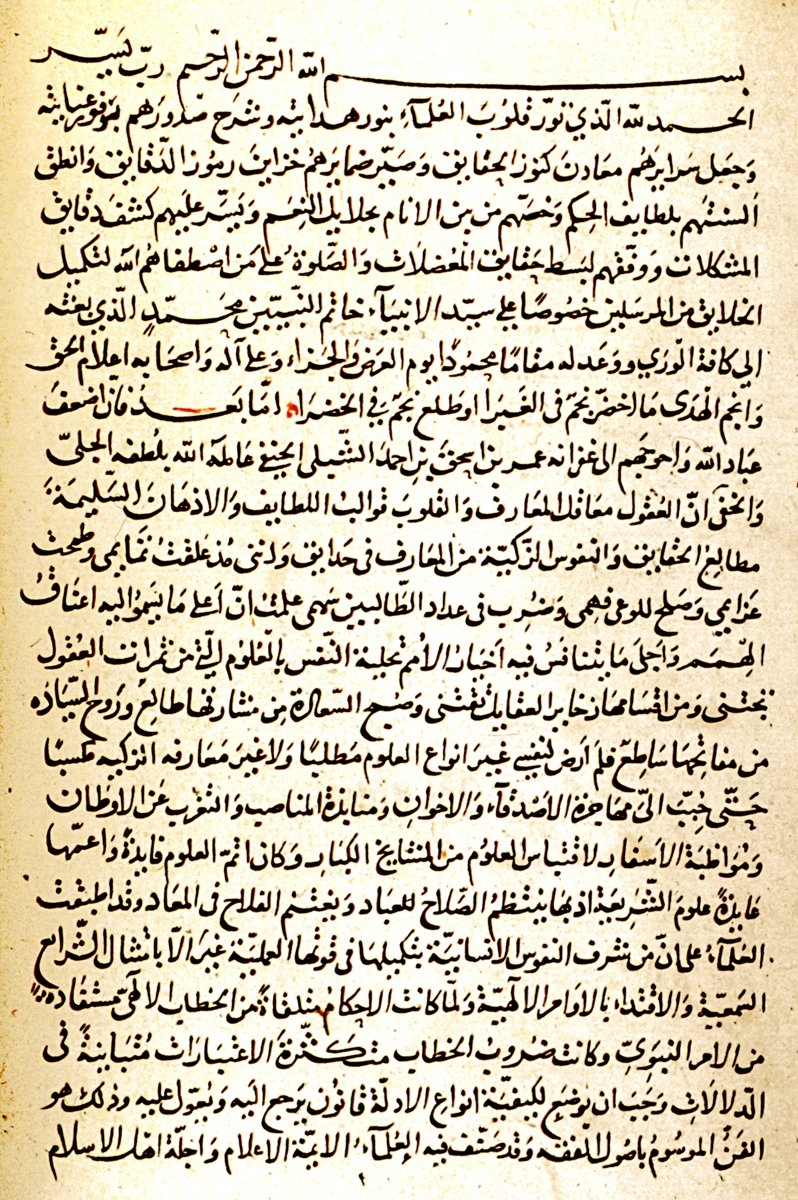 بسم الله الرحمن الرحيم رب يسر
الحمد لله الذي نور قلوب العلمآء بنور هدايته وشرح صدورهم بوفور عنايته
وجعل سرايرهم معادن كنوز الحقايق وصير ضمايرهم خزاين رموز الدقايق وانطق
السنتهم بلطايف الحكم وخصهم من بين الانام بجلايل النعم ويسر عليهم كشف دقايق
المشكلات ووفقهم لبسط حقايق المعضلات والصلوة على من اصطفاهم الله لتكميل
الخلايق من المرسلين خصوصًا على سيد الانبيآء خاتم النبيين محمدٍ الذي بعثه
الي كافة الوري ووعد له مقامًا محمودًا يوم العرض والجزاء وعلى آله واصحابه اعلام الحق
وانجم الهدى ما اخضر نجم فى الغبرا او طلع نجم في الخضرا اما بعد فان اضعف
عباد الله واحوجهم الى غفرانه عمر بن اسحق بن احمد الشبلى الحنفي عامله الله بلطفه الجلىّ
والخفى ان العقول معاقل المعارف والقلوب قوالب اللطايف والاذهان السليمة
مطالع الحقايق والنفوس الزكية من المعارف فى حدايق وانى مذ علقت تمايمى وطمحت
عزايمي وصلح للوعى فهمى وضرب فى عداد الطالبين سهمى علمت ان اعلى ما يسموا اليه اعناق
الهمم واجلى ما يتنافس فيه اخيار الامم تحلية النفس بالعلوم التي من ثمرات العقول
تجتنى ومن اقسامها ذخاير العقايل تقتنى وصبح السعادة من مشارقها طالع وروح السيادة
من مفاتحها ساطع فلم ارض لنفسي غير انواع العلوم مطلبًا ولا غير معارفه الزكيه مكسبًا
حتى حبب الىّ مهاجرة الاصدقآء والاخوان ومنابذة المناصب والتغرب عن الاوطان
ومواظبة الاسفار لاقتباس العلوم من المشايخ الكبار وكان اتم العلوم فايدةً واعمها
عايدةً علوم الشريعة اذ بها ينتظم الصلاح للعباد ويغتنم الفلاح فى المعاد وقد اطبقت
العلمآء على ان من شرف النفوس الانسانية بتكميلها فى قوتها العملية غير الا بامتثال الشرايع
السمعية والاقتداء بالاوامر الالهية ولما كانت الاحكام متلقاة من الخطاب الالهى مستفاده
من الامر النبوى وكانت ضروب الخطاب متكثرة الاعتبارات متباينةً فى
الدلالات وجب ان يوضع لكيفية انواع الادلة قانون يرجع اليه ويعول عليه وذلك هو
الفن الموسوم باصول الفقه وقد صنف فيه العلمآء الايمة الاعلام واجلة اهل الاسلام